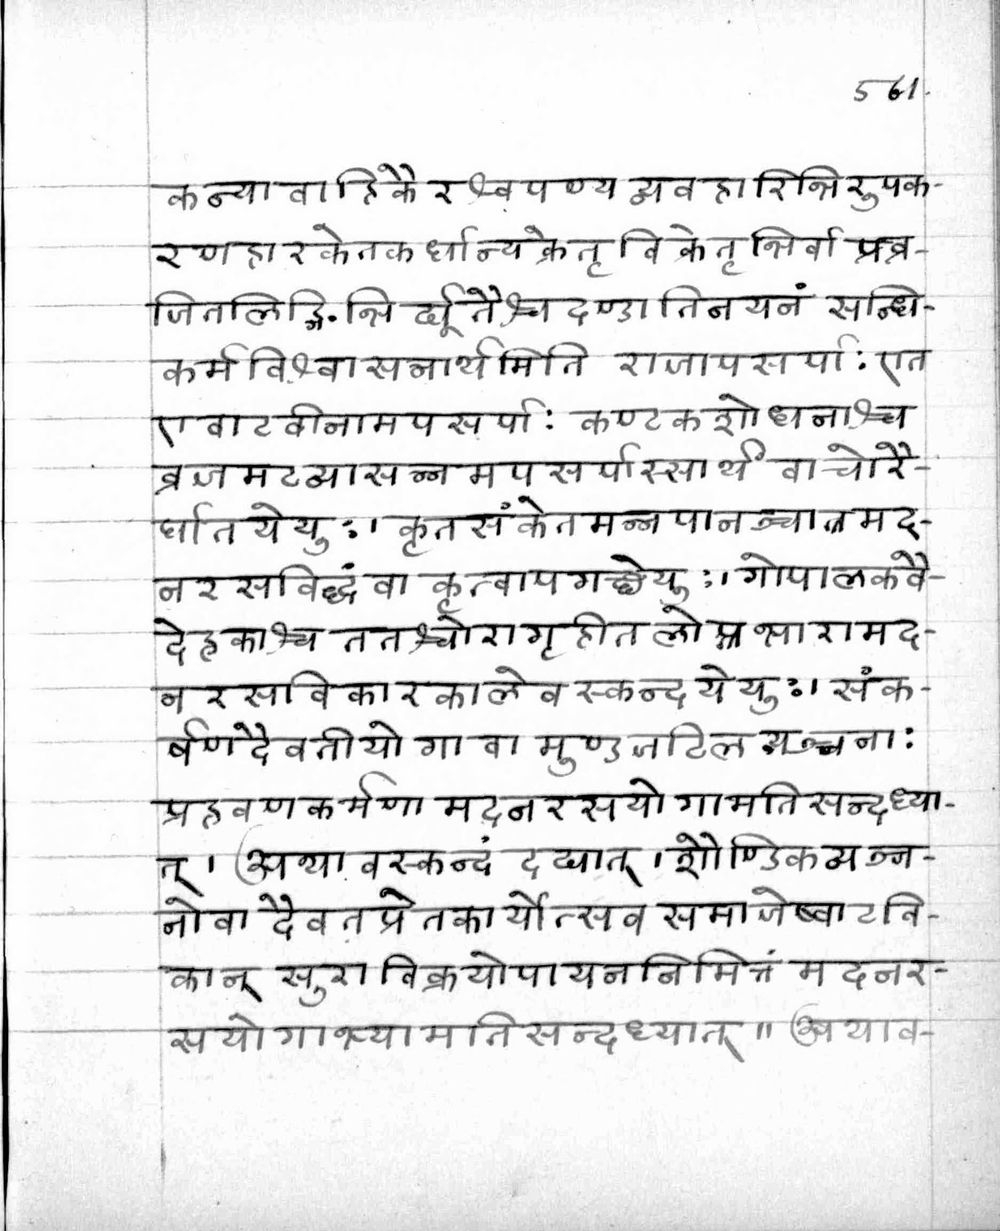 561.
कन्यावाहिकैरश्वपण्यव्यवहारिभिरुपक-
रणहारकेतकर्धान्यक्रेतृविक्रेतृभिर्वा प्रव्र-
जितलिङ्गिभिर्द्यूतैश्च दण्डातिनयनं सन्धि-
कर्मविश्वासनार्थमिति राजापसर्पाः एत
एवाटवीनामपसर्पाः कण्टकशोधनाश्च
व्रजमटव्यासन्नमपसर्पास्सार्थं वा चोरै-
र्घातयेयुः। कृतसंकेतमन्नपानञ्चात्रमद-
नरसविद्धं वा कृत्वापगच्छेयुः। गोपालकवै-
देहकाश्च ततश्चोरागृहीतलोप्त्रभारामद-
नरसविकारकालेवस्कन्दयेयुः। संक-
र्षणदैवतीयो गावा मुण्डजटिलव्यञ्जनाः
प्रहवणकर्मणा मदनरसयोगामतिसन्दध्या-
त्। (अथावस्कन्दं दद्यात्। शौण्डिकव्यञ्ज-
नोवा दैवतप्रेतकार्योत्सवसमाजेष्वाटवि-
कान् सुराविक्रयोपायननिमित्तं मदनर-
सयोगाभ्यामतिसन्दध्यात्॥ (अथाव-